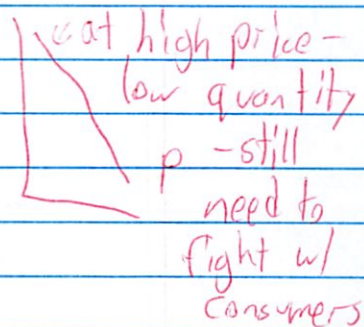 at high price -
low quantity
p - still
need to
fight w/
consumers